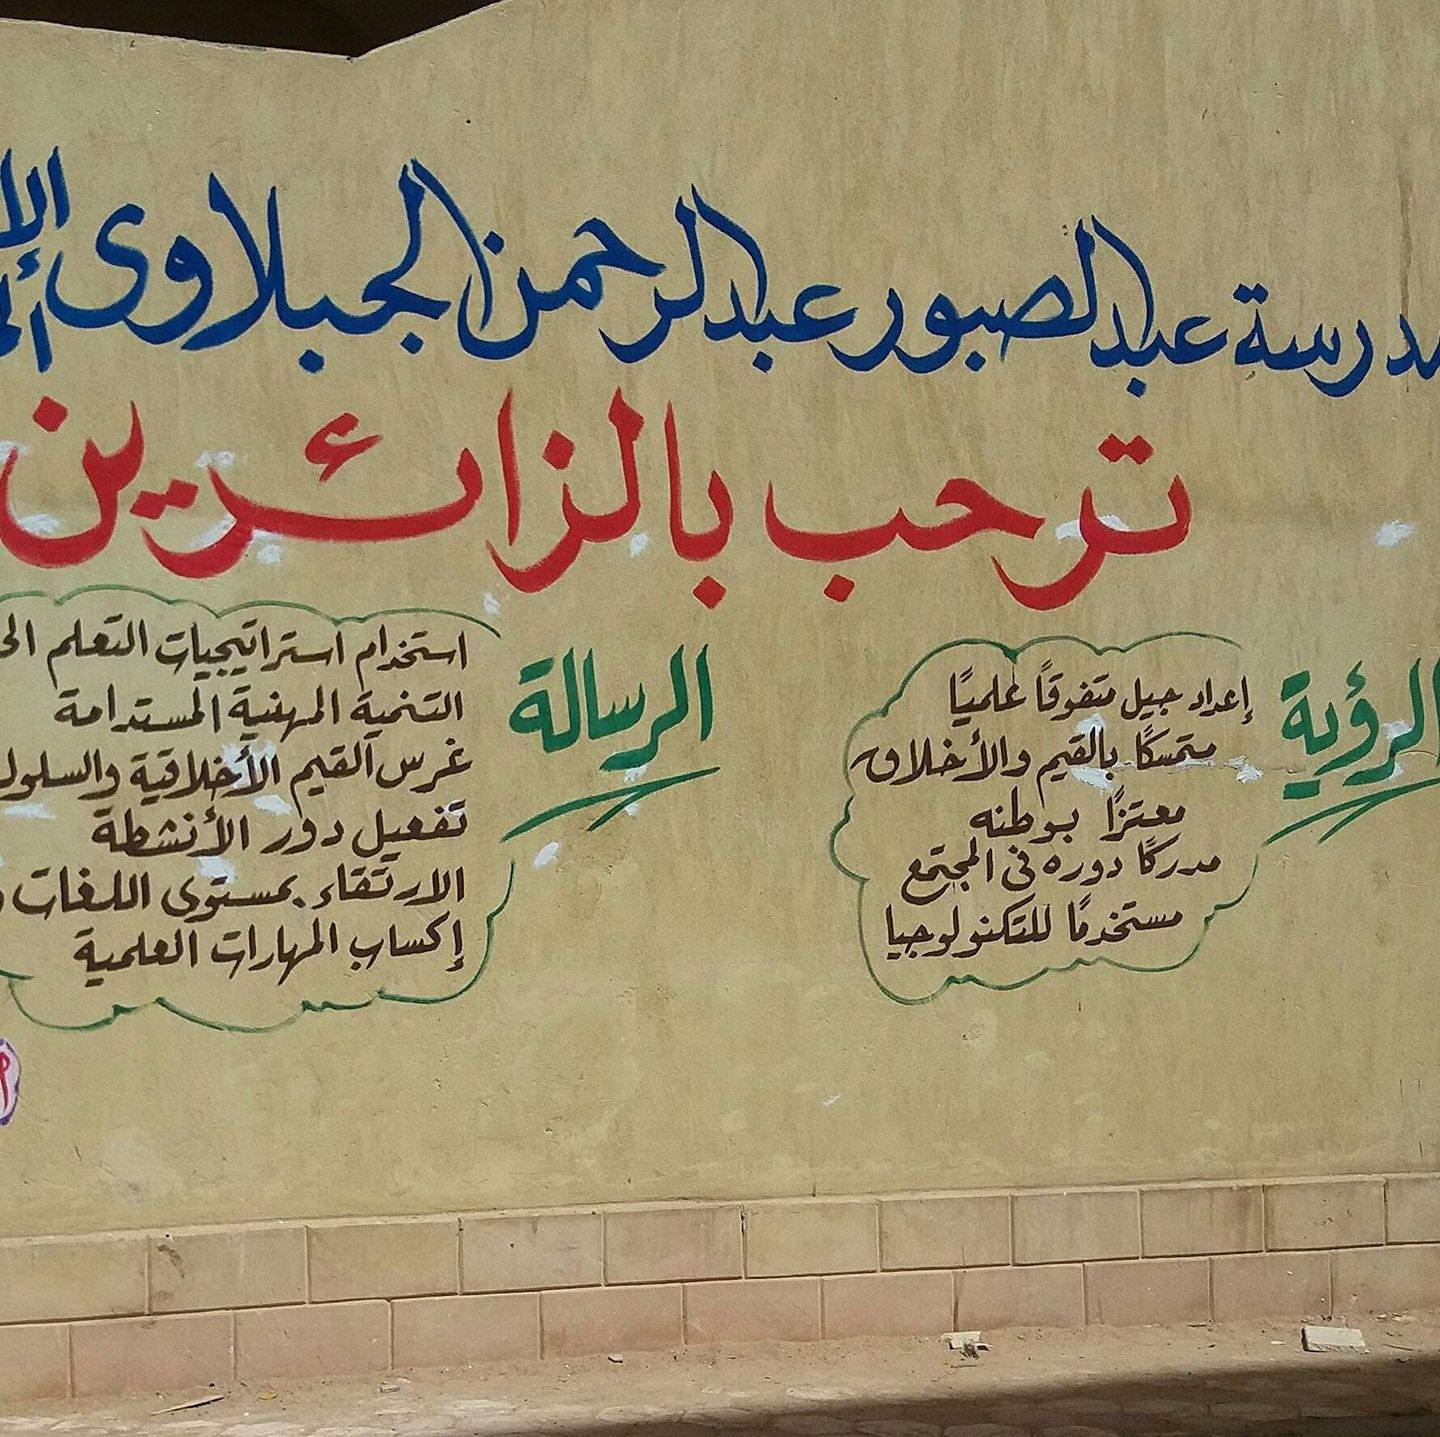 مدرسة عبد الصبور عبد الرحمن الجبلاوى
ترحب بالزائرين
الرؤية
إعداد جيل متفوقًا علميًا
متمسكًا بالقيم والأخلاق
معتزًا بوطنه
مدركًا دوره فى المجتمع
مستخدمًا للتكنولوجيا
الرسالة
استخدام استراتيجيات التعلم
التنمية المهنية المستدامة
غرس القيم الأخلاقية
تفعيل دور الأنشطة
الارتقاء بمستوى اللغات
إكساب المهارات العلمية